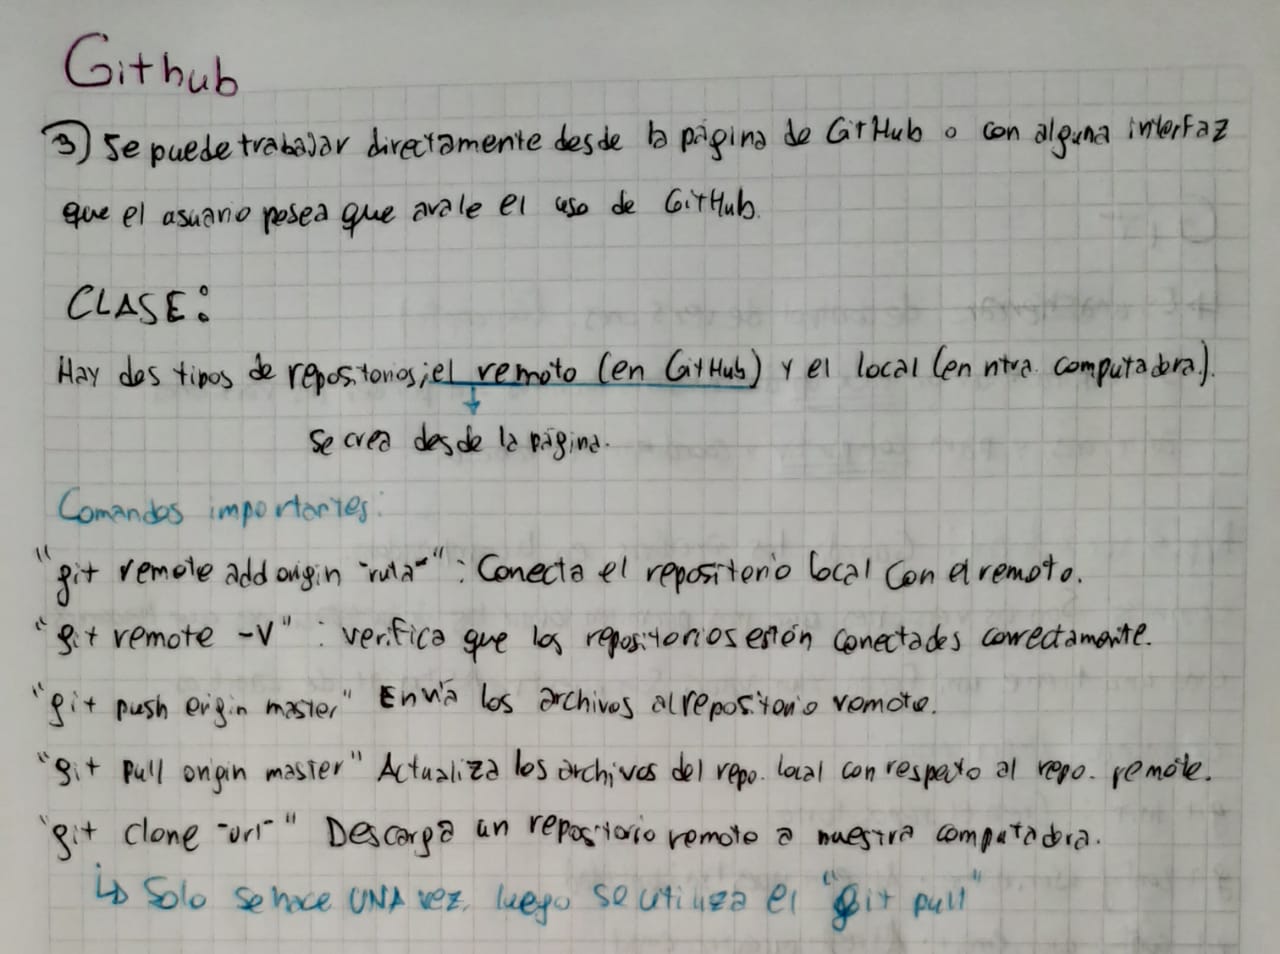 Github
3) Se puede trabajar directamente desde la página de GitHub o con alguna interfaz
que el usuario posea que avale el uso de GitHub.
CLASE:
Hay dos tipos de repositorios; el remoto (en GitHub) y el local (en ntra. computadora).
Se crea desde la página.
Comandos importantes:
"git remote add origin -ruta-" : Conecta el repositorio local con el remoto.
"git remote -v" : verifica que los repositorios estén conectados correctamente.
"git push origin master" Envía los archivos al repositorio remoto.
"git pull origin master" Actualiza los archivos del repo. local con respecto al repo. remoto.
"git clone -url-" Descarga un repositorio remoto a nuestra computadora.
↳ Solo se hace UNA vez, luego se utiliza el "git pull"